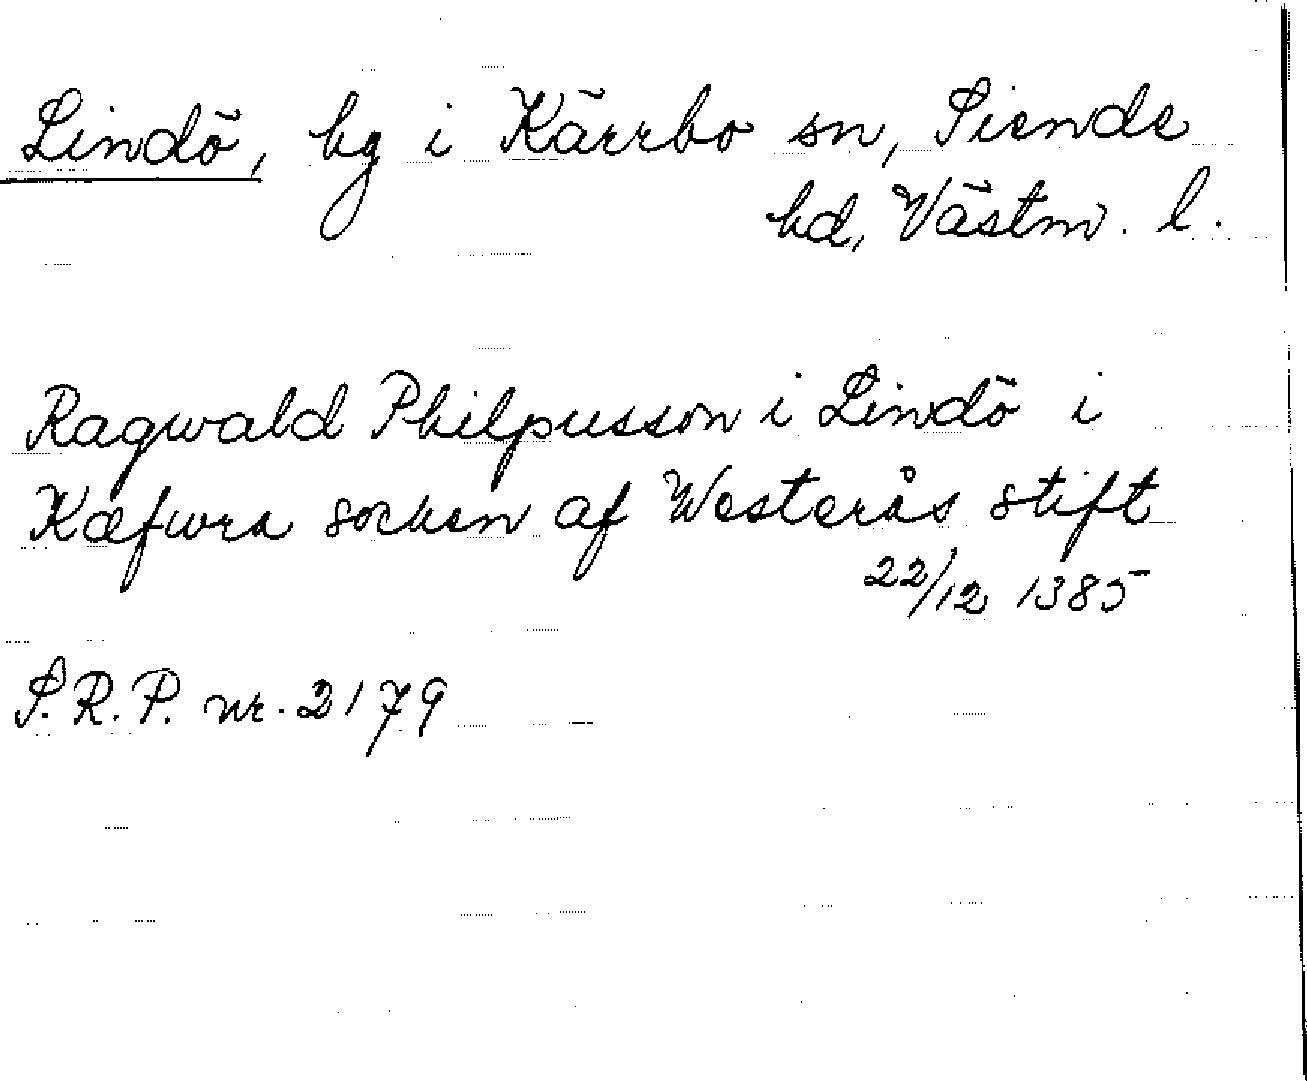 Lindö, hg i Kärrbo sn, Siende
hd, Västm. l.
Ragwald Philpusson i Lindö i
Kæfwra socken af Westerås stift
22/12 1385
S.R.P. nr. 2179